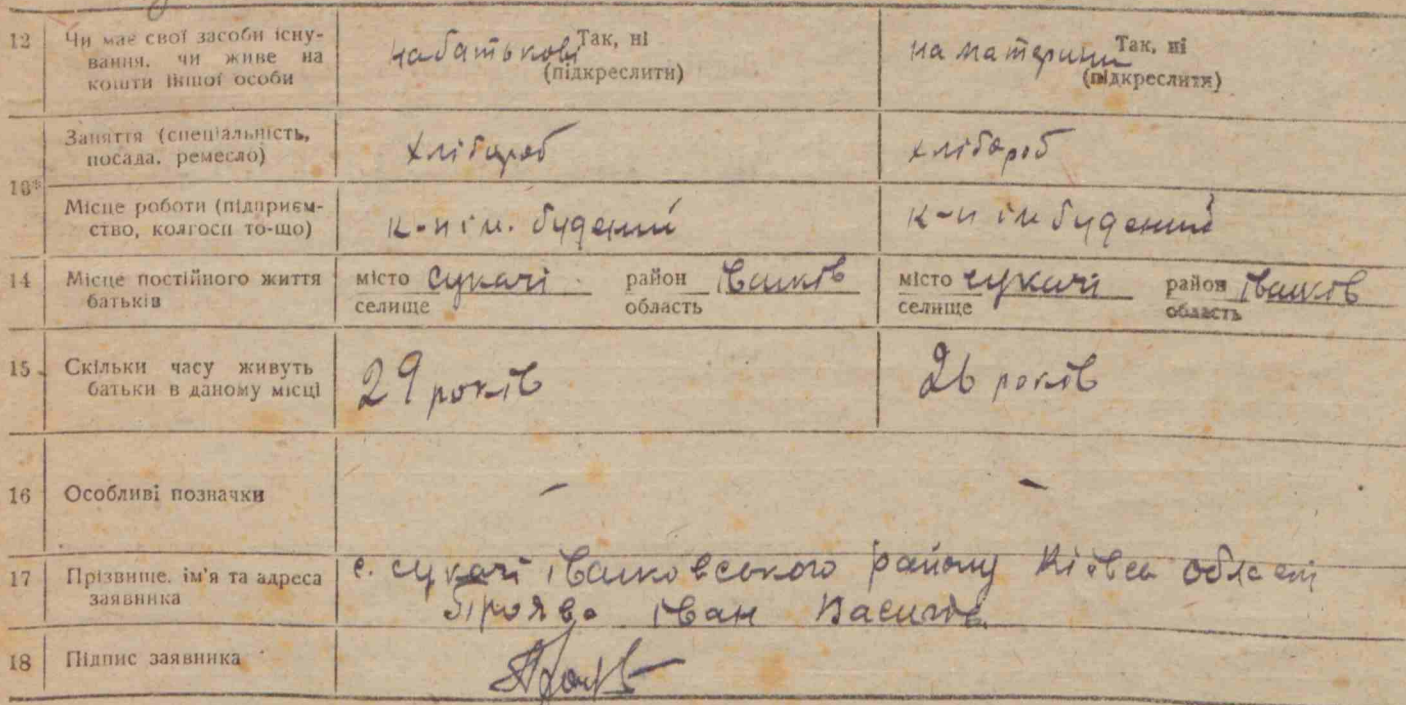 12 Чи має свої засоби існу-
вання. чи живе на
кошти іншої особи
на батькові Так, ні
(підкреслити)
на материни Так, ні
(підкреслити)
13* Заняття (спеціальність,
посада. ремесло)
хлібороб
хлібороб
Місце роботи (підприєм-
ство, колгосп то-що)
к-п ім. будений
к-п ім будений
14 Місце постійного життя
батьків
місто сукачі район іванків
селище область
місто сукачі район іванків
селище область
15 Скільки часу живуть
батьки в даному місці
29 років
26 років
16 Особливі позначки
-
-
17 Прізвище. ім'я та адреса
заявника
с. сукачі іванковського району Київсь області
іван
18 Підпис заявника